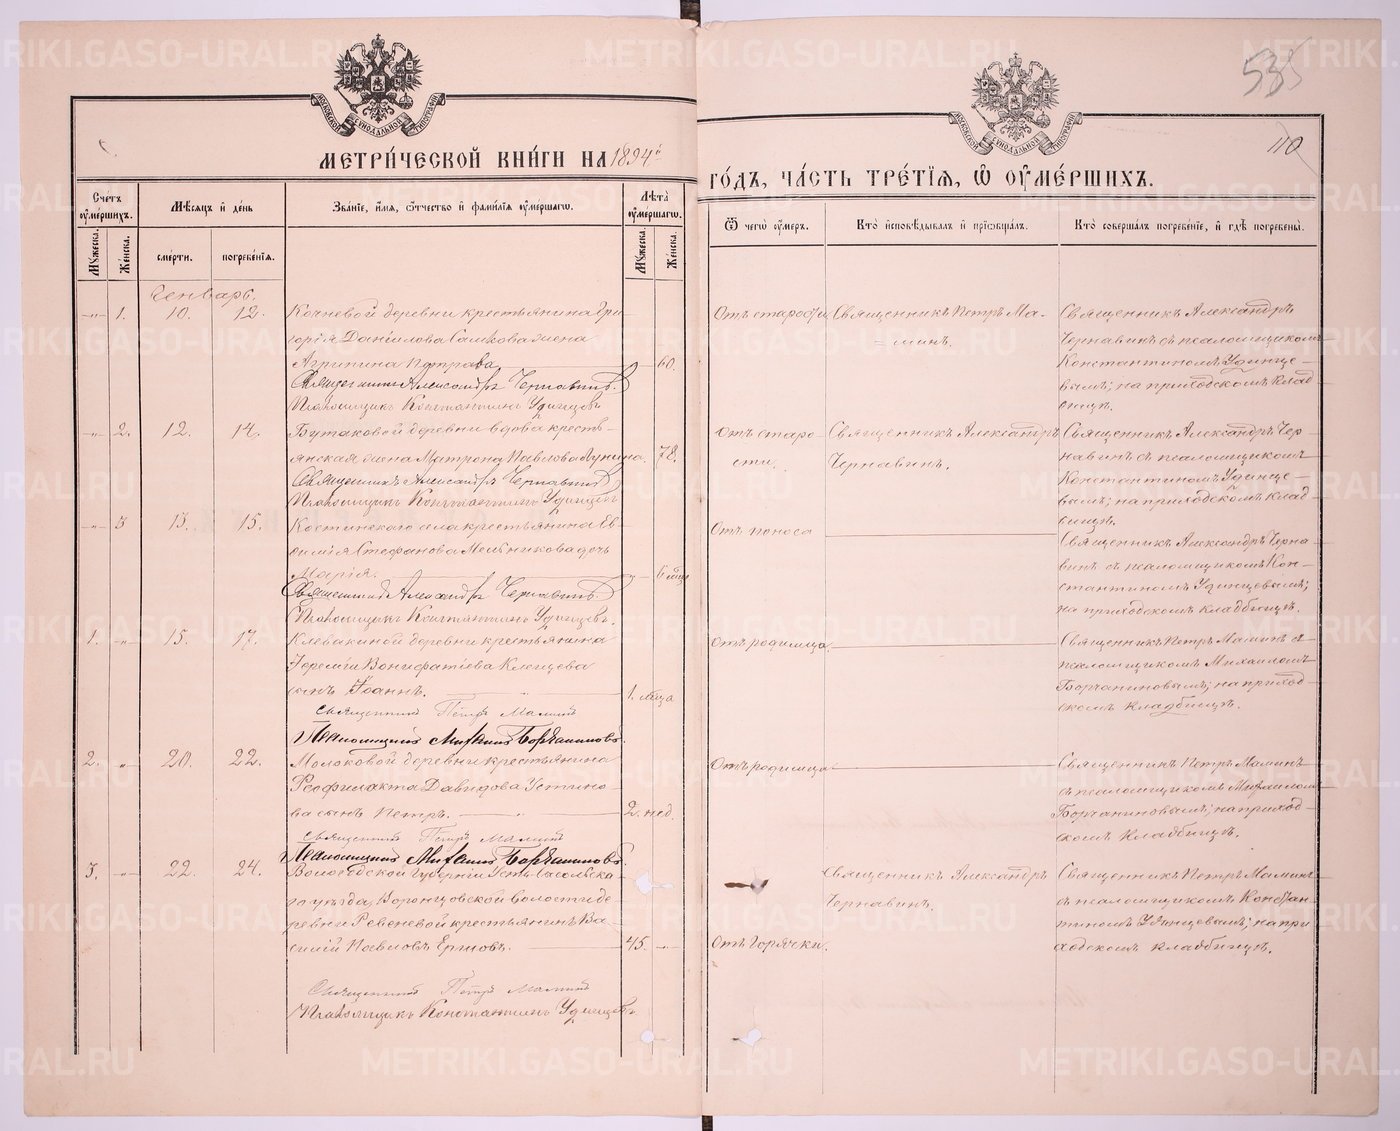 535
110
МЕТРИ́ЧЕСКОЙ КНИ́ГИ НА 1894й
ГО́ДЪ, ЧА́СТЬ ТРЕ́ТІѦ, Ѿ ОУМЕ́РШИХЪ.
МОСКОВСКОЙ СѴНОДАЛЬНОЙ ТИПОГРАФІИ
МОСКОВСКОЙ СѴНОДАЛЬНОЙ ТИПОГРАФІИ
Счетъ оумершихъ.
Мѣсяцъ и день
Званіе, имя, отчество и фамилія оумершагω.
Лѣта оумершагω.
Ѿ чегω оумеръ.
Кто исповѣдывалъ и пріωбщалъ.
Кто совершалъ погребеніе, и гдѣ погребены.
Мужеска.
Женска.
смерти.
погребенія.
Мужеска.
Женска.
Генварь.
-"- 1. 10. 12.
Кочневой деревни крестьянина Гри-
горія Даніилова Сашкова жена
Агрипина Петрова 60.
Священникъ Александръ Чернавинъ.
Псаломщикъ Константинъ Удинцевъ
Отъ старости
Священникъ Петръ Ма-
минъ.
Священникъ Александръ
Чернавинъ съ псаломщикомъ
Константиномъ Удинце-
вымъ; на приходскомъ клад-
бищѣ.
-"- 2. 12. 14.
Бутаковой деревни вдова кресть-
янская жена Матрона Павлова Лунина. 78.
Священникъ Александръ Чернавинъ
Псаломщикъ Константинъ Удинцевъ
Отъ старо-
сти.
Священникъ Александръ
Чернавинъ.
Священникъ Александръ Чер-
навинъ съ псаломщикомъ
Константиномъ Удинце-
вымъ; на приходскомъ клад-
бищѣ.
-"- 3 13. 15.
Костинскаго села крестьянина Ев-
фимія Стефанова Мельникова дочь
Марія. 6 мѣс
Священникъ Александръ Чернавинъ
Псаломщикъ Константинъ Удинцевъ.
Отъ поноса
Священникъ Александръ Черна-
винъ съ псаломщикомъ Кон-
стантиномъ Удинцевымъ;
на приходскомъ кладбищѣ.
1. -"- 15. 17.
Клевакиной деревни крестьянина
Іереміи Вонифатіева Клепцева
сынъ Іоаннъ. 1. мѣсца
Священникъ Петръ Маминъ
Псаломщикъ Михаилъ Борчаниновъ.
Отъ родимца
Священникъ Петръ Маминъ съ
псаломщикомъ Михаиломъ
Борчаниновымъ; на приход-
скомъ кладбищѣ.
2. -"- 20. 22.
Молоковой деревни крестьянина
Феофилакта Давидова Устино-
ва сынъ Петръ. 2. нед.
Священникъ Петръ Маминъ
Псаломщикъ Михаилъ Борчаниновъ.
Отъ родимца
Священникъ Петръ Маминъ
съ псаломщикомъ Михаиломъ
Борчаниновымъ; на приход-
скомъ кладбищѣ.
3. -"- 22. 24.
Вологодской губерніи Усть-Сысольска-
го уѣзда, Воронцовской волости де-
ревни Ревеневой крестьянинъ Ва-
силій Павловъ Ершовъ. 45. -"-
Священникъ Петръ Маминъ
Псаломщикъ Константинъ Удинцевъ
Отъ горячки.
Священникъ Александръ
Чернавинъ.
Священникъ Петръ Маминъ
съ псаломщикомъ Констан-
тиномъ Удинцевымъ; на при-
ходскомъ кладбищѣ.
METRIKI.GASO-URAL.RU